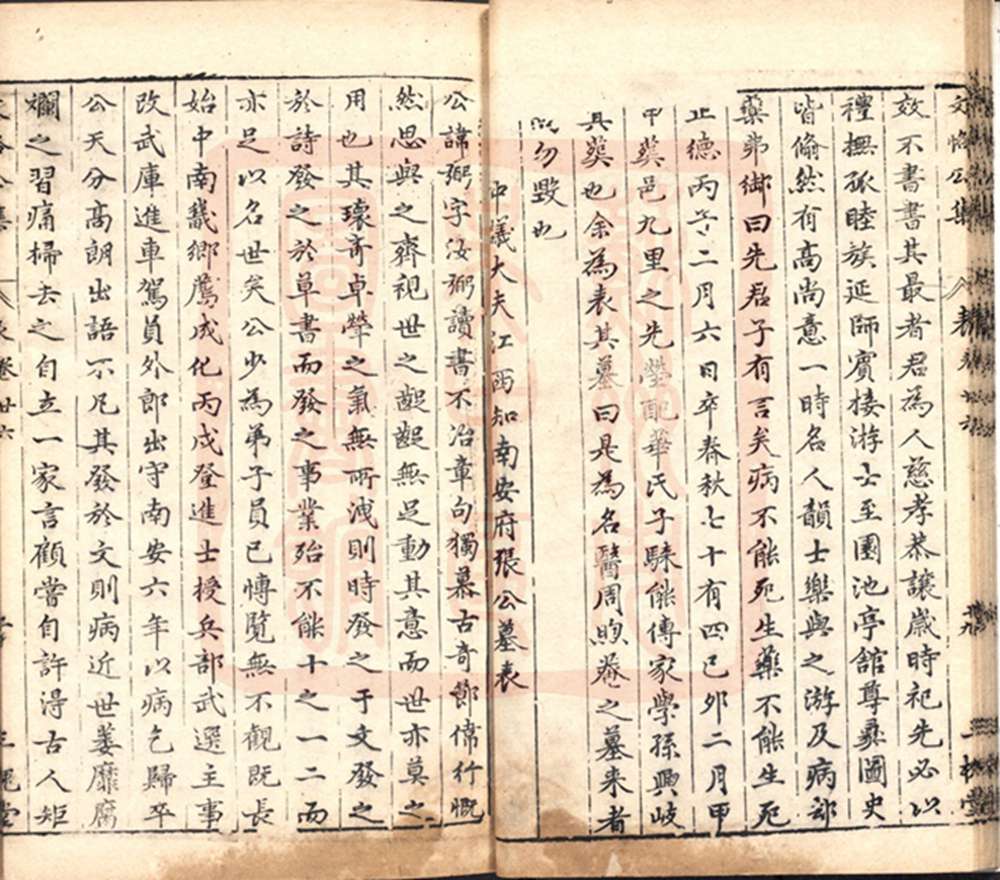 文恪公集
表卷廿六
效不書書其最者君為人慈孝恭讓歲時祀先必以
禮撫孤睦族延師賓接游士至園池亭館尊彞圖史
皆翛然有高尚意一時名人韻士樂與之游及病却
藥弟御曰先君子有言矣病不能死生藥不能生死
正德丙子二月六日卒春秋七十有四已卯二月甲
申葬邑九里之先塋配華氏子騄能傳家學孫興岐
具葬也余為表其墓曰是為名醫周煦菴之墓来者
勿毀也
中議大夫江西知南安府張公墓表
公諱弼字汝弼讀書不治章句獨慕古奇節偉行慨
然思與之齊視世之齪齪無足動其意而世亦莫之
用也其瓌奇卓犖之氣無所洩則時發之于文發之
於詩發之於草書而發之事業殆不能十之一二而
亦足以名世矣公少為弟子員已愽覧無不觀既長
始中南畿鄉薦成化丙戌登進士授兵部武選主事
改武庫進車駕員外郎出守南安六年以病乞歸卒
公天分高朗出語不凡其發於文則病近世萎靡腐
爛之習痛掃去之自立一家言顧嘗自許得古人矩